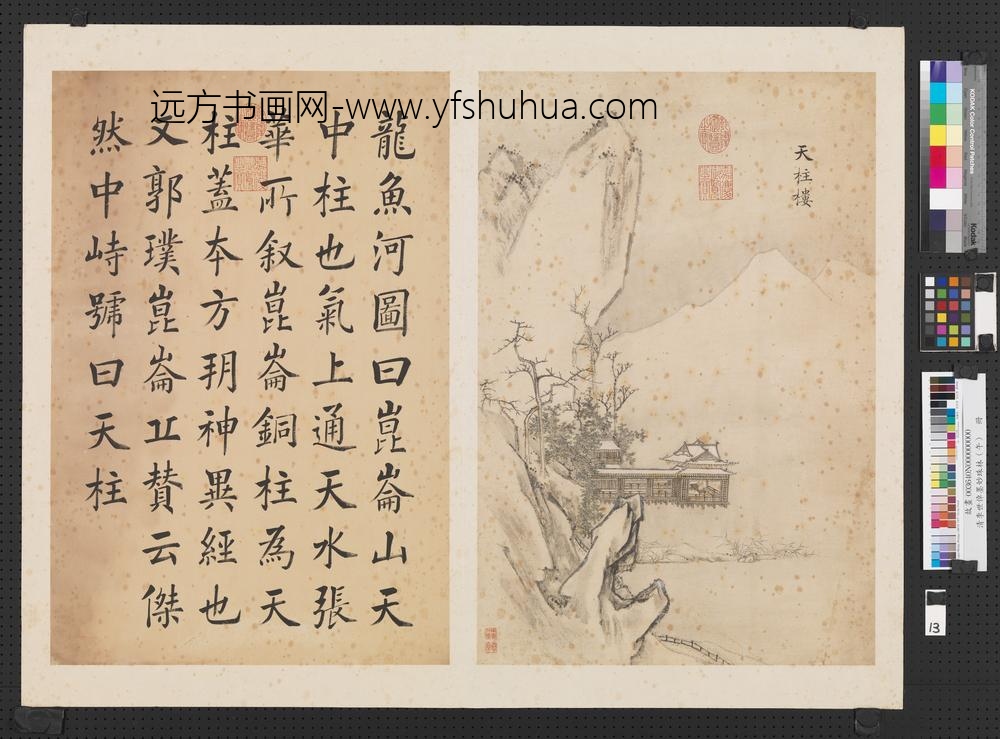 远方书画网-www.yfshuhua.com
天柱樓
龍魚河圖曰崑崙山天
中柱也氣上通天水張
華所叙崑崙銅柱為天
柱蓋本方朔神異經也
又郭璞崑崙丘賛云傑
然中峙號曰天柱
KODAK Color Control Patches
Kodak
故畫 003640N000000000
清李世倬墨妙珠林(午) 冊
13